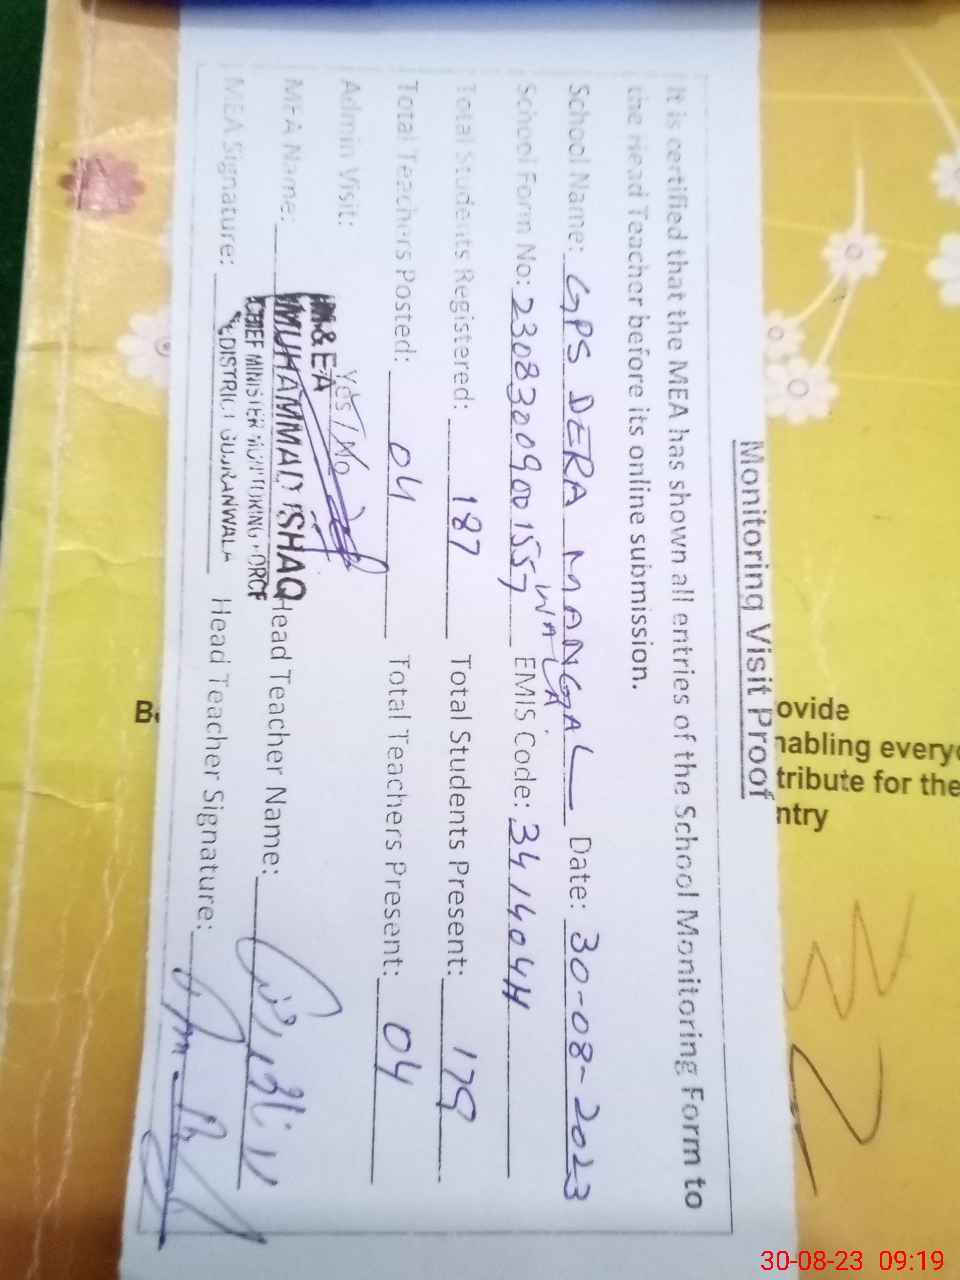 Monitoring Visit Proof
It is certified that the MEA has shown all entries of the School Monitoring Form to
the Head Teacher before its online submission.
School Name: GPS DERA MANGAL Date: 30-08-2023
WALA
School Form No: 23083009001557 EMIS Code: 341404H
Total Students Registered: 187 Total Students Present: 179
Total Teachers Posted: 04 Total Teachers Present: 04
Admin Visit: Yes / No
M&EA
MEA Name: MUHAMMAD ISHAQ Head Teacher Name:
CHIEF MINISTER MONITORING FORCE
MEA Signature: DISTRICT GUJRANWALA Head Teacher Signature:
ovide
nabling everyo
tribute for the
ntry
30-08-23 09:19